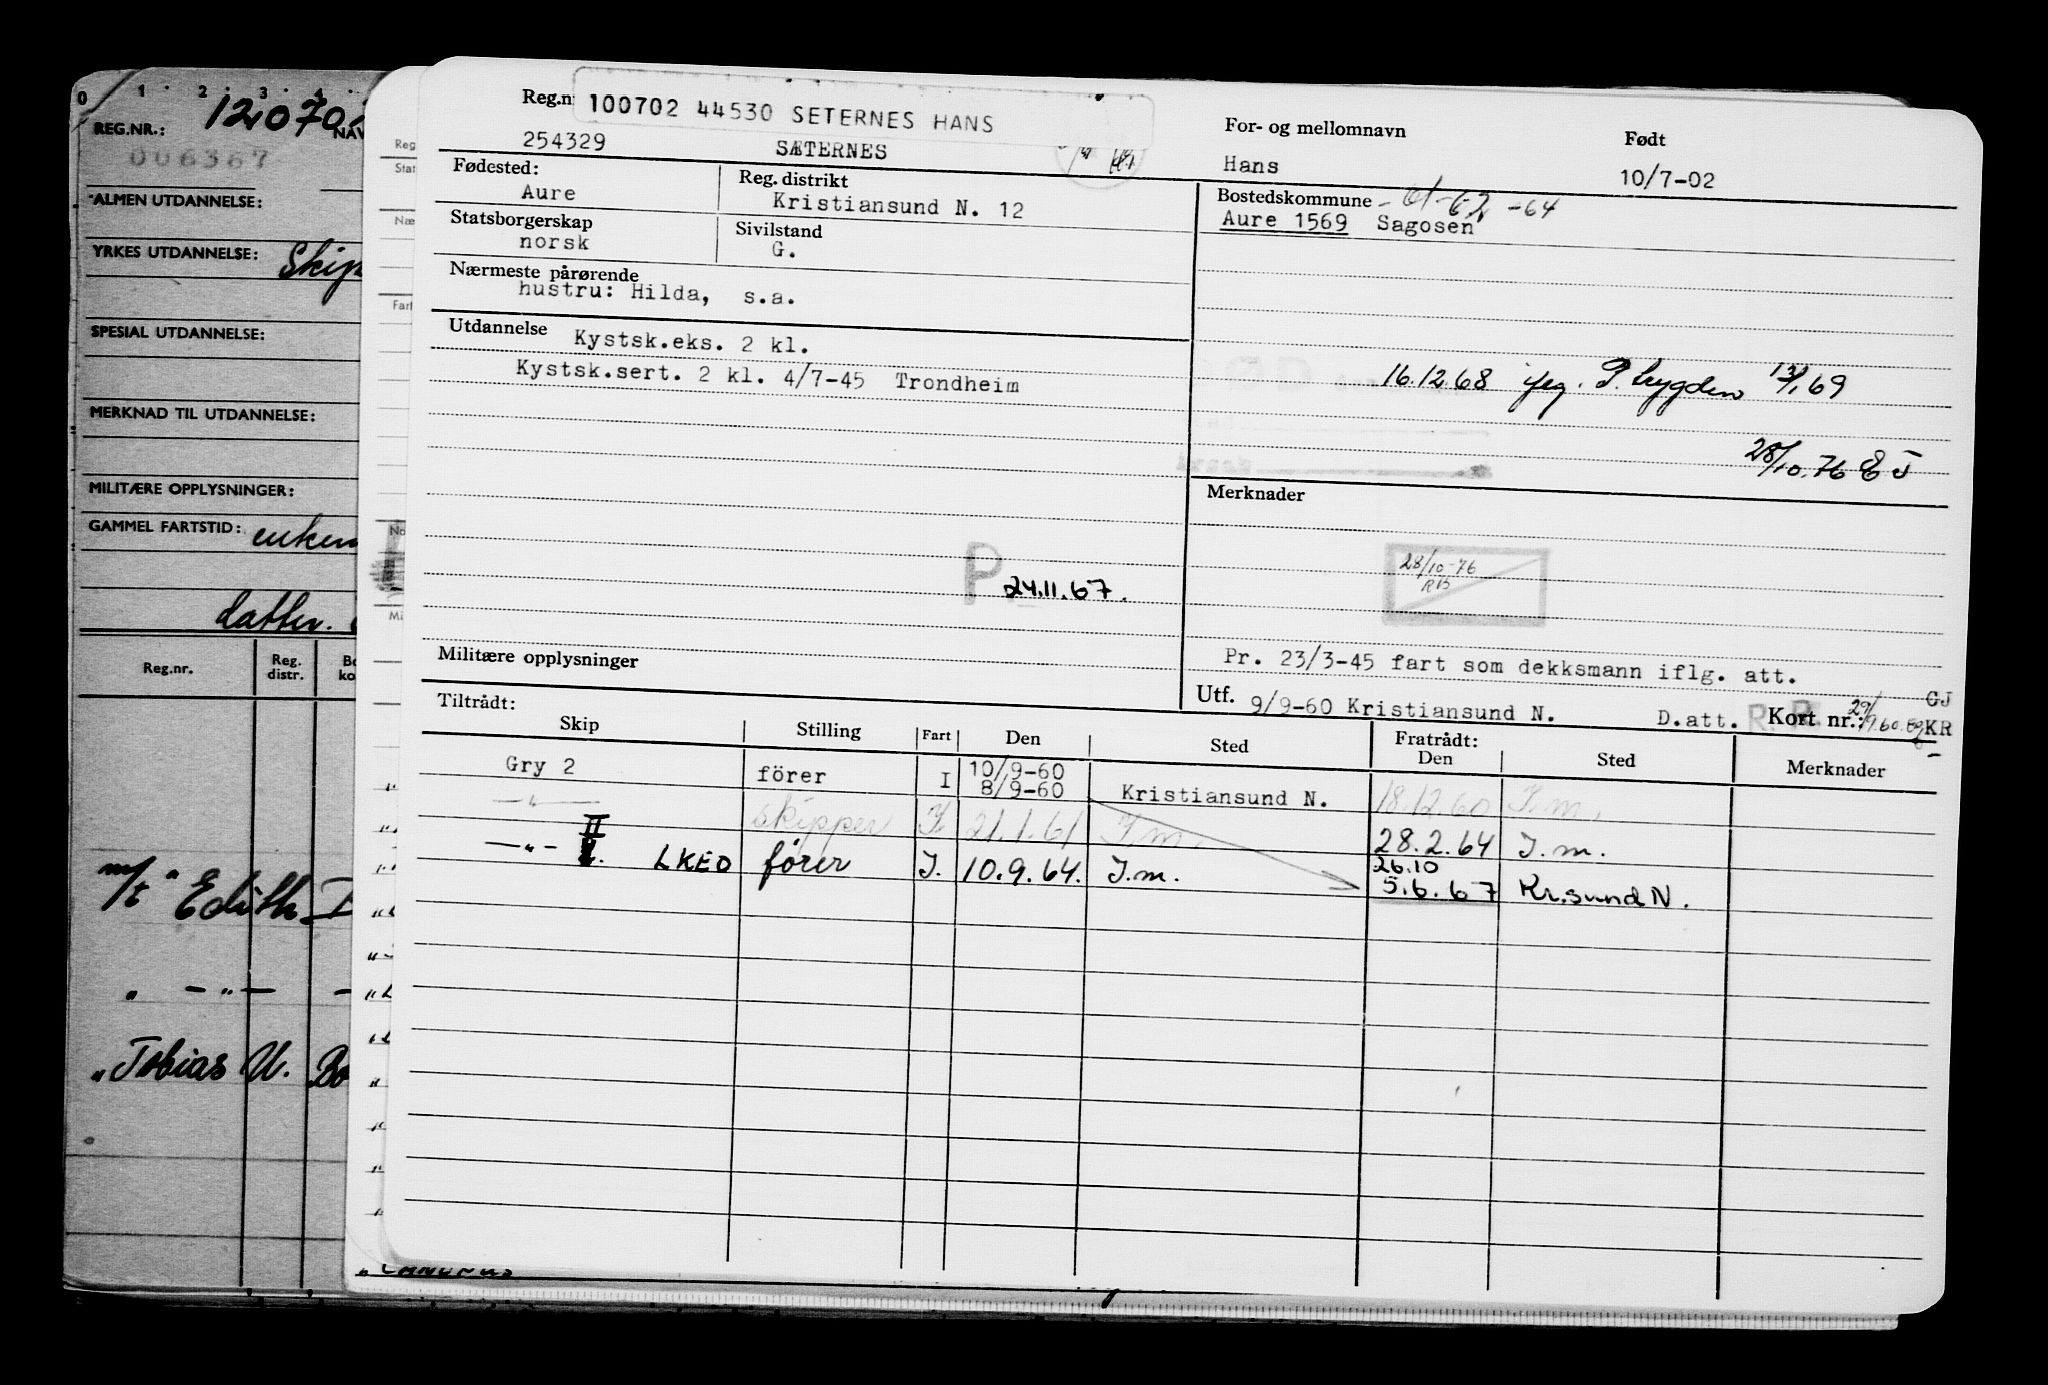 0 1 2 3 4
REG.NR.: 120702 NAV
006367
ALMEN UTDANNELSE:
YRKES UTDANNELSE: Skip
SPESIAL UTDANNELSE:
MERKNAD TIL UTDANNELSE:
MILITÆRE OPPLYSNINGER:
GAMMEL FARTSTID: enken
datter.
Reg.nr. Reg. distr. Bo ko
m/t "Edith I
" — " — —
" Tobias U. Bo
Reg
Stat
Næ
Fart
No
Mi
Reg.nr 100702 44530 SETERNES HANS
For- og mellomnavn Født
254329 SÆTERNES Hans 10/7-02
Fødested: Reg. distrikt Bostedskommune - 61-62 -64
Aure Kristiansund N. 12 Aure 1569 Sagosen
Statsborgerskap Sivilstand
norsk G.
Nærmeste pårørende
hustru: Hilda, s.a.
Utdannelse Kystsk.eks. 2 kl.
Kystsk.sert. 2 kl. 4/7-45 Trondheim
16.12.68 P. trygden 13/1 69
28/10.76 EJ
Merknader
P 24.11.67.
28/10-76
RB
Militære opplysninger
Pr. 23/3-45 fart som dekksmann iflg. att.
GJ
Utf. 9/9-60 Kristiansund N. D.att. Kort nr.: 29/9.60. KR
Tiltrådt: Fratrådt:
Skip Stilling Fart Den Sted Den Sted Merknader
Gry 2 förer I 10/9-60 8/9-60 Kristiansund N. 18.12.60 I.m.
— " — skipper I. 21.1.61 I.m. 28.2.64 I.m.
— " — II LKEO fører I. 10.9.64. I.m. 26.10 5.6.67 Kr.sund N.